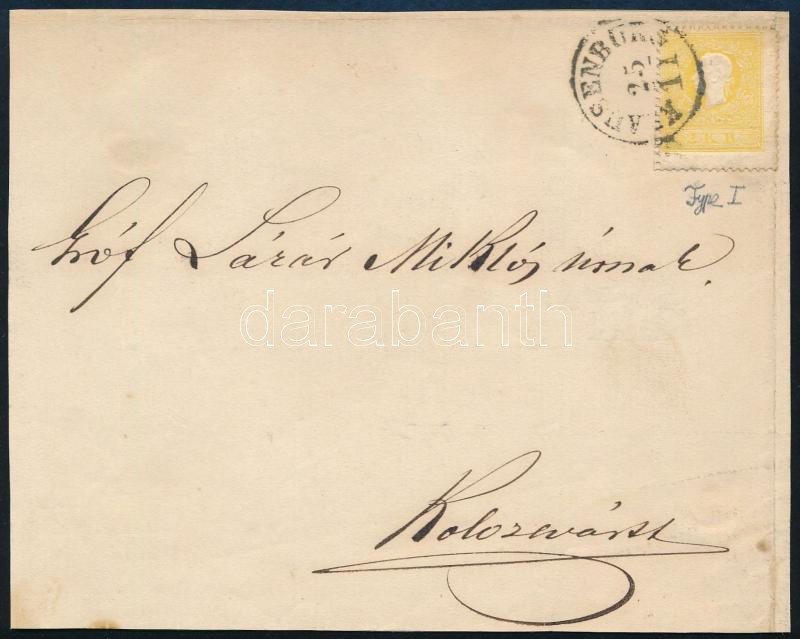 KLAUSENBURG
25
11
2 KR
Type I
Gróf Lázár Miklós úrnak.
darabanth
Kolozsvártt